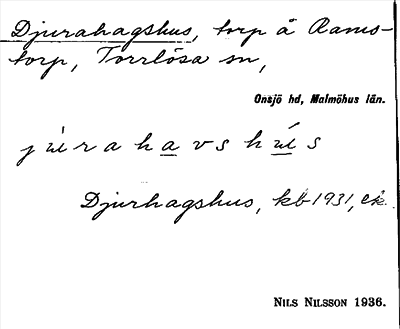 Djurahagshus, torp å Rams-
torp, Torrlösa sn,
Onsjö hd, Malmöhus län.
jùrahavshús
Djurhagshus, kb 1931, ek.
NILS NILSSON 1936.